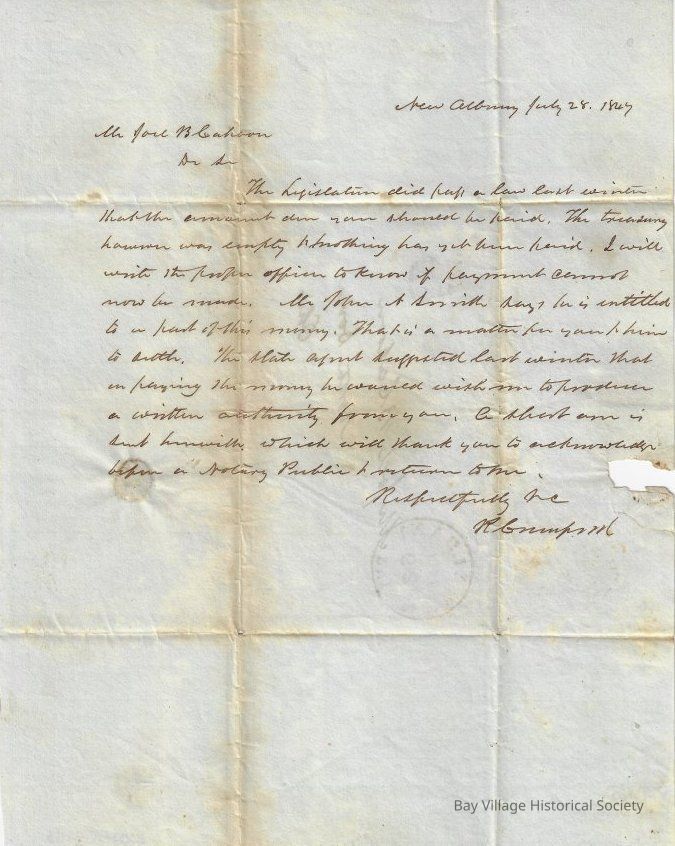 New Albany July 28. 1847
Mr Joel B Cahoon
Dr Sir
The Legislature did pass a law last winter
that the amount due you should be paid. The treasury
however was empty & nothing has yet been paid. I will
write the proper officer to know if payment cannot
now be made. Mr John A Smith says he is intitled
to a part of this money. That is a matter for you & him
to settle. The state agent suggested last winter that
in paying the money he wanted with me to produce
a written authority from you. A short one is
sent herewith, which will thank you to acknowledge
before a Notary Public & return to me.
Respectfully &c
R Crawford
Bay Village Historical Society